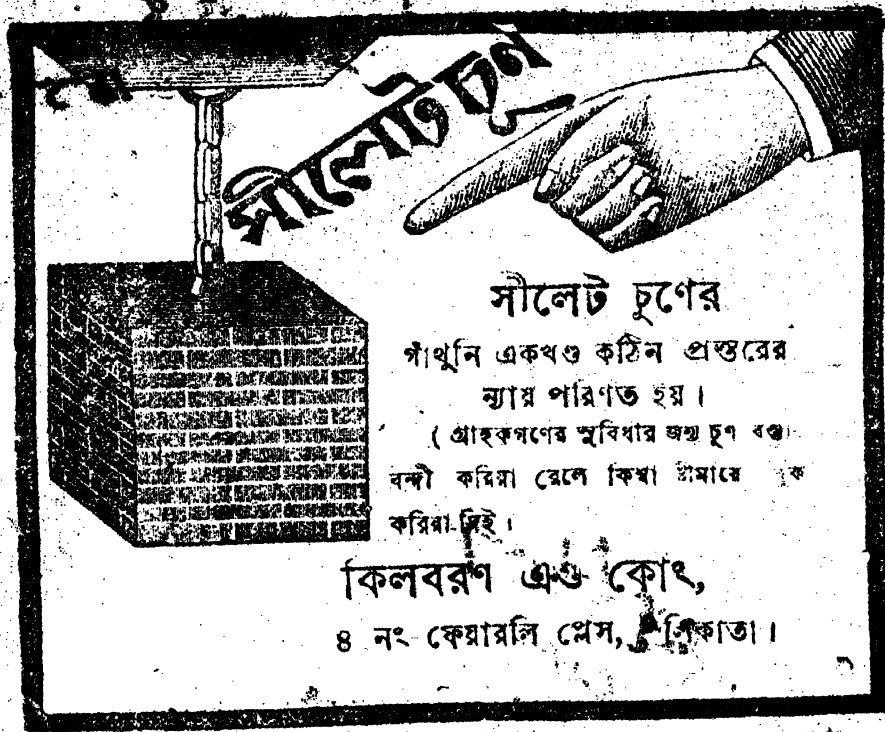 সীলেট চূর্ণ
সীলেট চুণের
গাঁথুনি একখণ্ড কঠিন প্রস্তরের
ন্যায় পরিণত হয়।
( গ্রাহকগণের সুবিধার জন্য চুণ বস্তা
বন্দী করিয়া রেলে কিম্বা ষ্টীমারে
করিয়া দিই।
কিলবরণ এণ্ড কোং,
৪ নং ফেয়ারলি প্লেস, কলিকাতা।